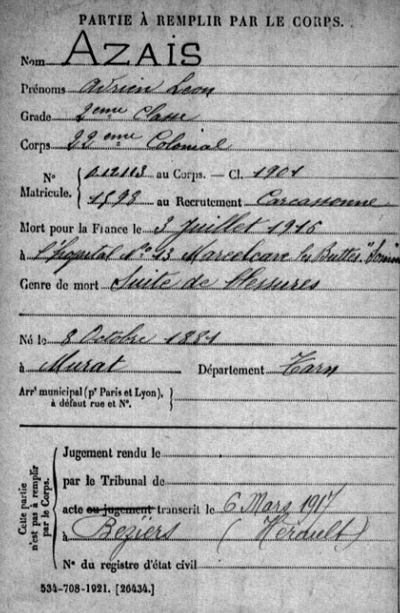 PARTIE À REMPLIR PAR LE CORPS.
Nom AZAIS
Prénoms Adrien Leon
Grade 2eme Classe
Corps 22 eme Colonial
No Matricule. { 012113 au Corps. — Cl. 1901
1593 au Recrutement Carcassonne
Mort pour la France le 3 Juillet 1916
à l'hopital No 13 Marcelcan les Buttes "Somme
Genre de mort Suite de blessures
Né le 8 Octobre 1881
à Murat Département Tarn
Arrt municipal (pr Paris et Lyon), à défaut rue et No. }
Cette partie n'est pas à remplir par le Corps.
Jugement rendu le
par le Tribunal de
acte ou jugement transcrit le 6 Mars 1917
à Beziers (Hérault)
No du registre d'état civil
534-708-1921. [26434.]